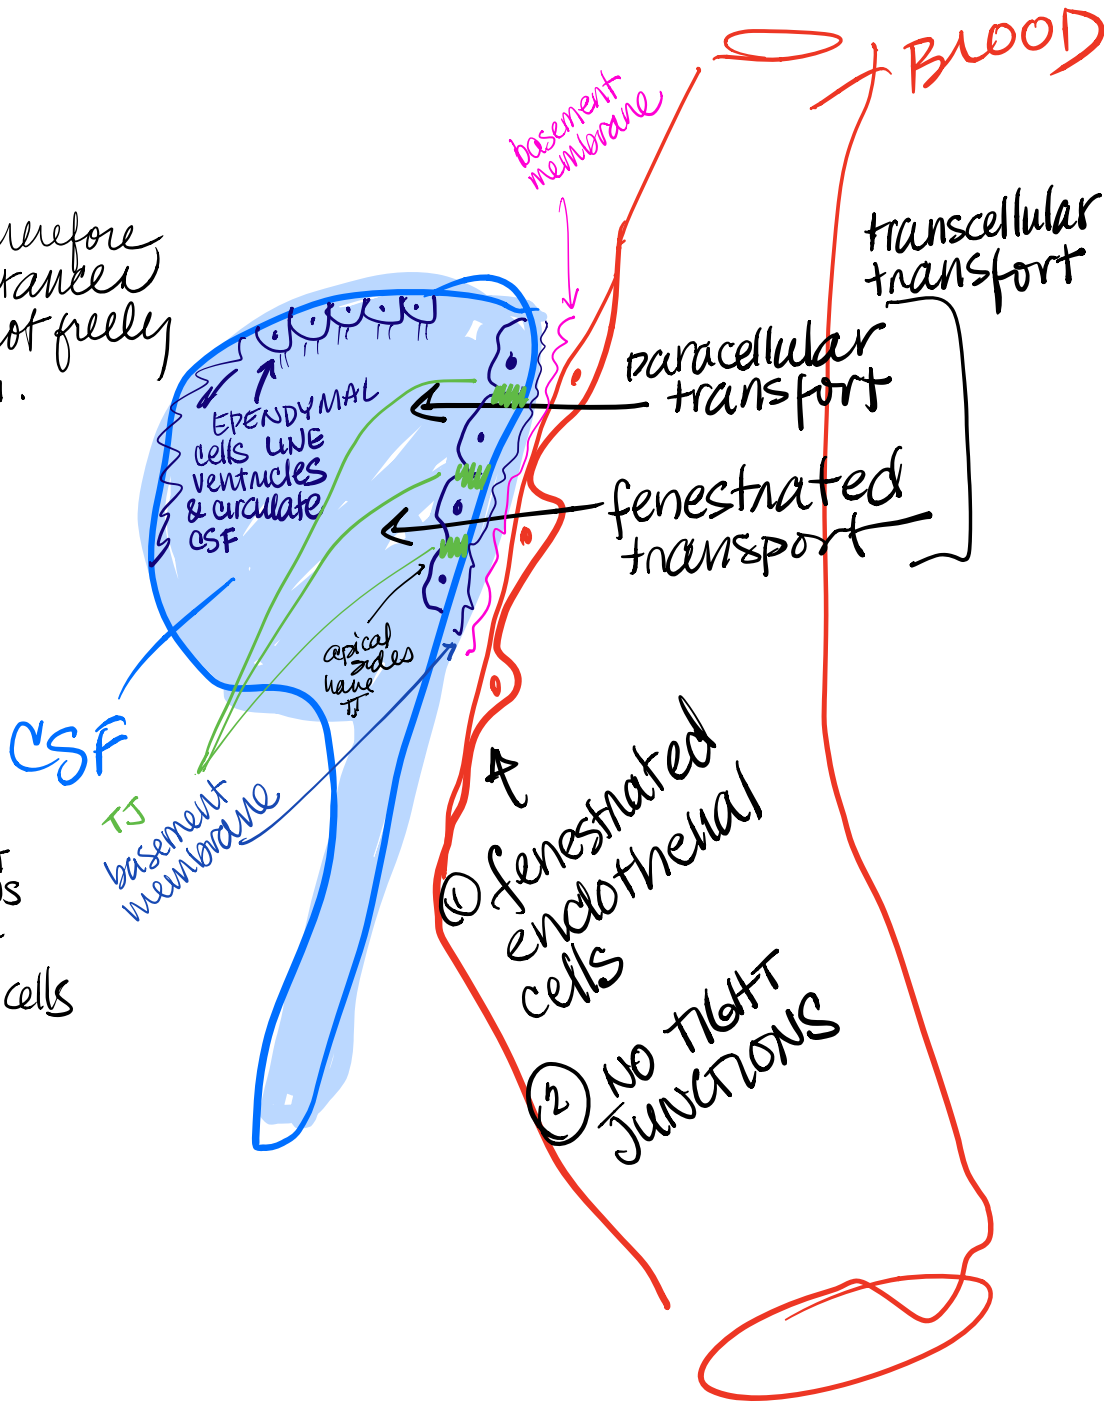 BLOOD
basement
membrane
transcellular
transfort
therefore
not freely
paracellular
transfort
EPENDYMAL
cells LINE
ventricles
& circulate
CSF
fenestrated
transport
apical
sides
have
TJ
CSF
TJ
basement
membrane
cells
① fenestrated
endothelial
cells
② NO TIGHT
JUNCTIONS